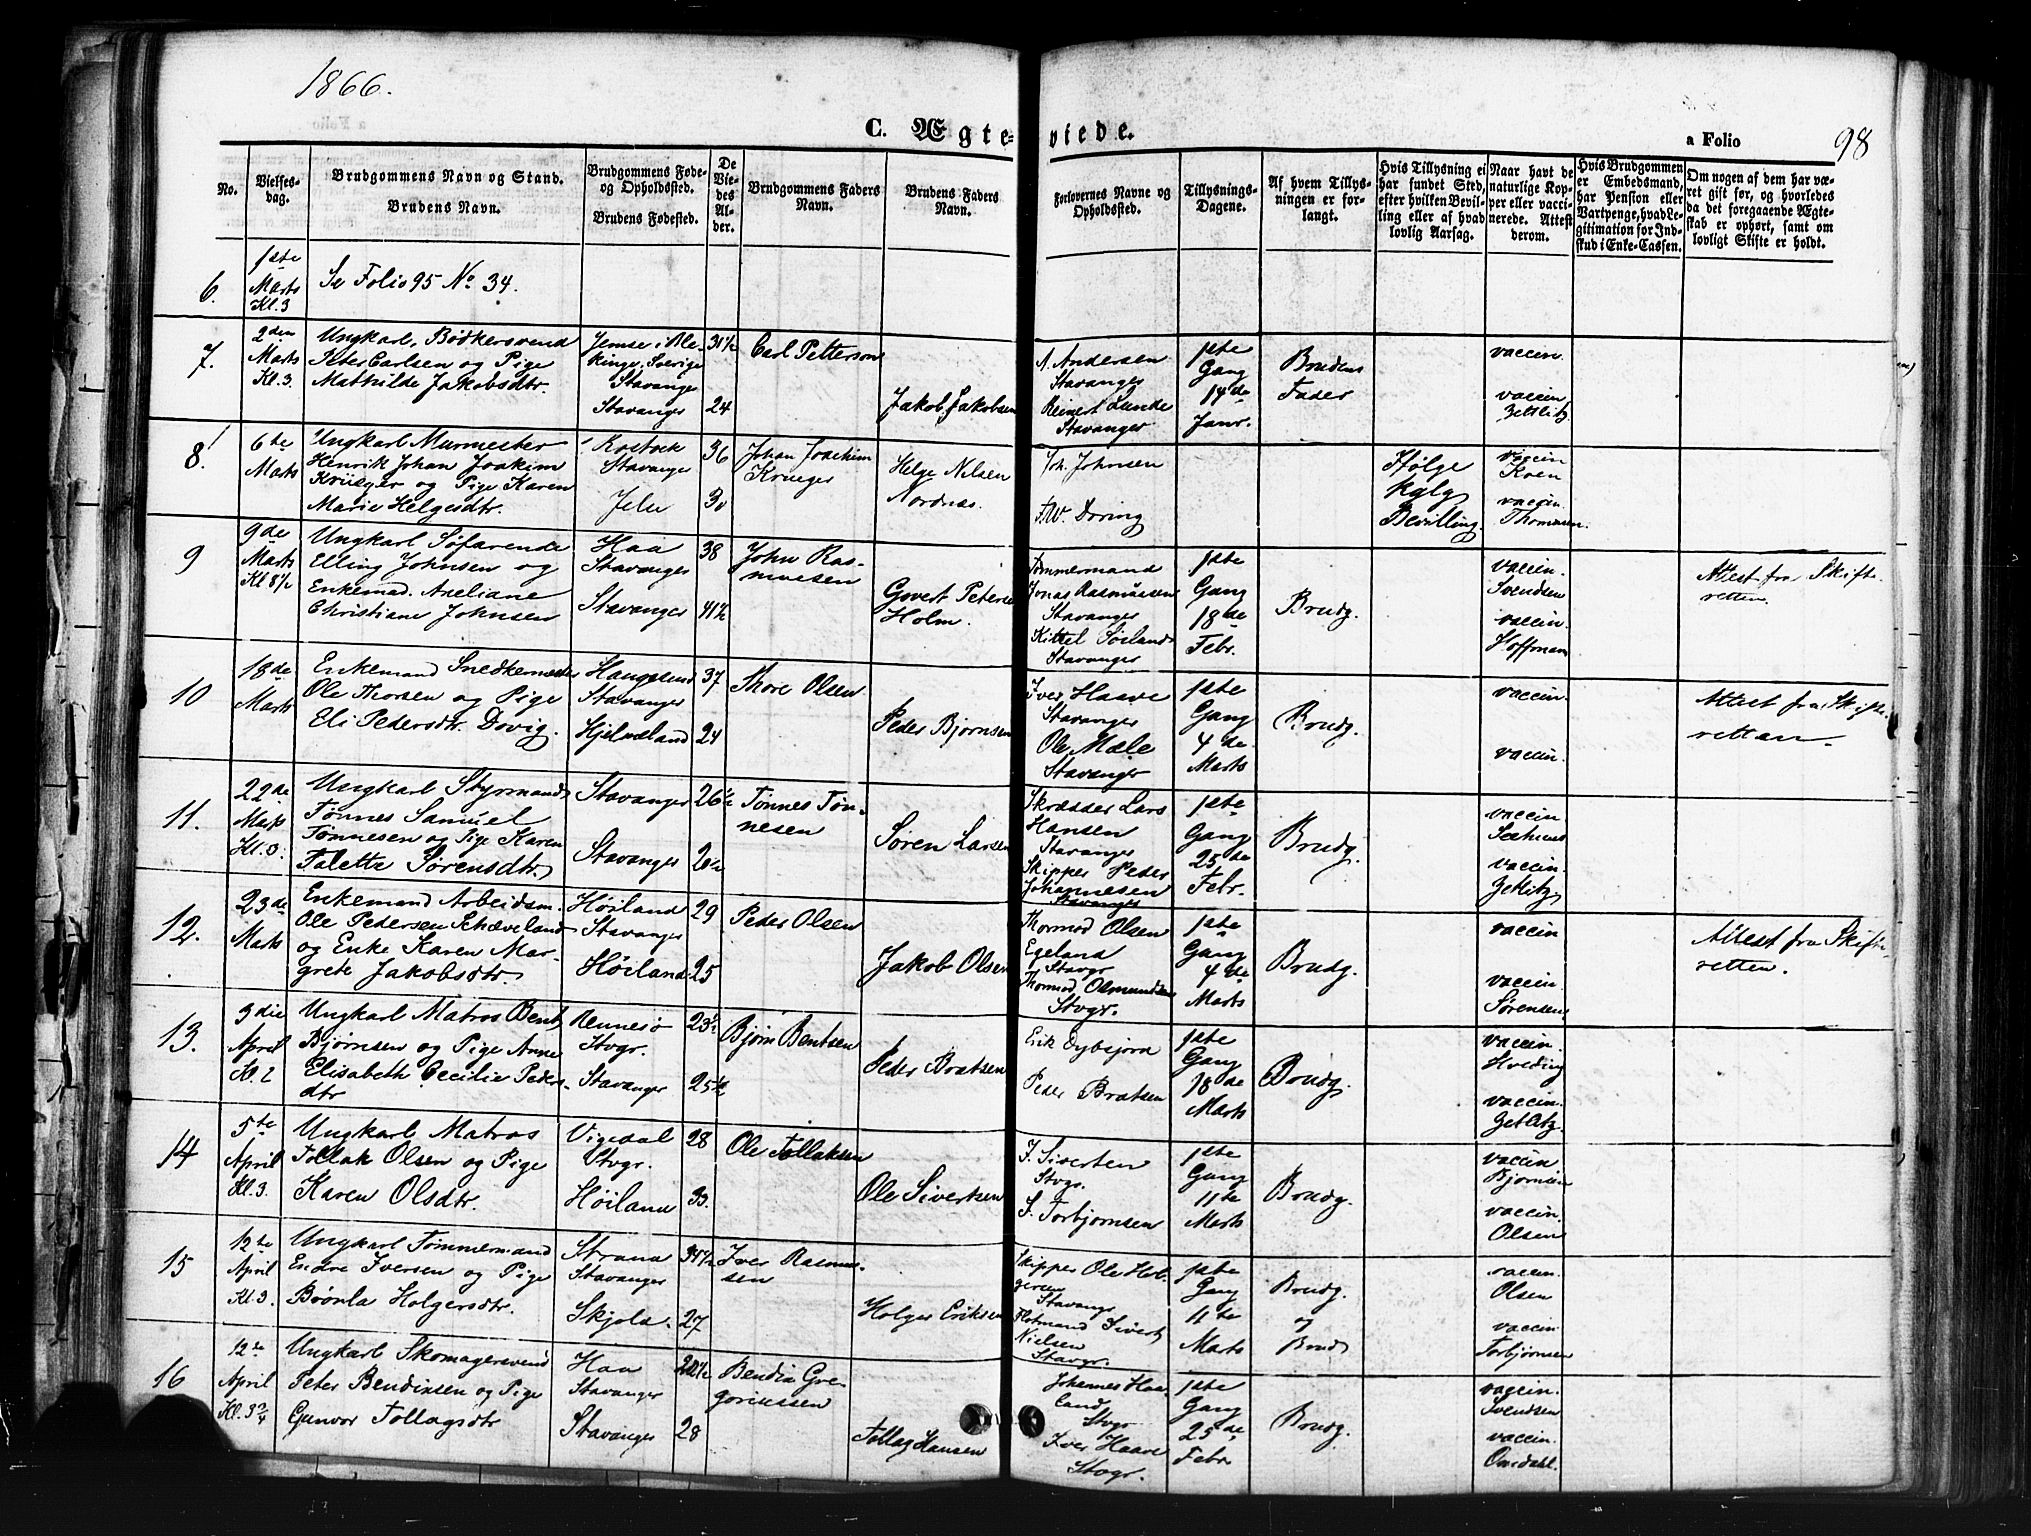 1866.
C. Ægte-
viede.
a Folio
98
No.
Vielses-
dag.
Brudgommens Navn og Stand.
Brudens Navn.
Brudgommens Føde-
og Opholdssted.
Brudens Fødested.
De
Vie-
des
Al-
der.
Brudgommens Faders
Navn.
Brudens Faders
Navn.
Forlovernes Navne og
Opholdssted.
Tillysnings-
Dagene.
Af hvem Tillys-
ningen er for-
langt.
Hvis Tillysning ei
har fundet Sted,
efter hvilken Bevil-
ling eller af hvad
lovlig Aarsag.
Naar havt de
naturlige Kop-
per eller vacci-
nerede. Attest
derom.
Hvis Brudgommen
er Embedsmand,
har Pension eller
Vartpenge, hvad Le-
gitimation for Ind-
skud i Enke-Cassen.
Om nogen af dem har væ-
ret gift før, og hvorledes
da det foregaaende Ægte-
skab er ophørt, samt om
lovligt Skifte er holdt.
6.
1ste
Marts
Kl. 3
Se Folio 95 No 34.
7.
2den
Marts
Kl. 3.
Ungkarl, Bødkersvend
Peter Carlsen og Pige
Mathilde Jakobsdtr.
Jemse i Ble-
kinge, Sverige
Stavanger
Stavanger
31½
24
Carl Petterson
Jakob Jakobsen
A. Andersen
Stavanger
Reinert Lunde
Stavanger
1ste
Gang
14de
Janr.
Brudens
Fader
vaccin.
vaccin
Zetlitz
8.
6te
Marts
Ungkarl Murmester
Henrik Johan Joakim
Krueger og Pige Karen
Marie Helgesdtr.
Rostock
Stavanger
Jelse
36
30
Johan Joachim
Krueger
Helge Nilsen
Nordnæs.
Joh. Johnsen
F.W. Døring
Ifølge
kglg
Bevilling.
vaccin
Koen
vaccin.
Thomsen.
9
9de
Marts
Kl 8½
Ungkarl Søfarende
Elling Johnsen og
Enkemad. Axeliane
Christiane Johnsen
Haa
Stavanger
Stavanger
38
41½
John Ras-
mussen
Govert Peterse
Holm.
Tømmermand
Jonas Rasmussen
Stavanger
Kittel Søiland
Stavanger
1ste
Gang
18de
Febr.
Brudg.
vaccin.
Svendsen
vaccin.
Hoffman
Attest fra Skifte-
retten.
10
18de
Marts
Enkemand Snedkermester
Ole Thorsen og Pige
Eli Pedersdtr. Døvig.
Haugesund
Stavanger
Hjelmeland
37
24
Thore Olsen
Peder Bjørnsen
Iver Haave
Stavanger
Ole Mæle
Stavanger
1ste
Gang
4de
Marts
Brudg.
vaccin.
vaccin.
Attest fra Skifte-
retten.
11.
22de
Marts
Kl. 3.
Ungkarl Styrmand
Tønnes Samuel
Tønnesen og Pige Karen
Talette Sørensdtr.
Stavanger
Stavanger
26½
Tønnes Tøn-
nesen
Søren Larsen
Skrædder Lars
Hansen
Stavanger
Skipper Peder
Johannesen
Stavanger
1ste
Gang
25de
Febr.
Brudg.
vaccin
vaccin.
Zetlitz
12.
23de
Marts
Enkemand Arbeidsm.
Ole Pedersen Skæveland
og Enke Karen Mar-
grete Jakobsdtr.
Høiland
Stavanger
Høiland
29
25
Peder Olsen
Jakob Olsen
Thormod Olsen
Egeland
Stavgr
Thormod Osmundsen
Stvgr.
1ste
Gang
4de
Marts
Brudg.
vaccin
vaccin.
Sørensen
Attest fra Skifte-
retten.
13.
3die
April
Kl. 2
Ungkarl Matros Bent
Bjørnsen og Pige Anne
Elisabeth Cecilie Peders-
dtr
Rennesø
Stvgr.
Stavanger
23½
25½
Bjørn Bentsen
Peder Bratsen
Erik Dybsjord
Peder Bratsen
1ste
Gang
18de
Marts
Brudg.
vaccin.
Hveding
vaccin.
Zetlitz
14
5te
April
Kl. 3.
Ungkarl Matros
Tollak Olsen og Pige
Karen Olsdtr.
Vigedal
Stvgr.
Høiland
28
33.
Ole Tollaksen
Ole Sivertsen
J. Sivertsen
Stvgr.
J. Torbjørnsen
1ste
Gang
11te
Marts
Brudg.
vaccin.
Bjørnsen
vaccin.
Olsen
15
12te
April
Kl. 3.
Ungkarl Tømmermand
Endre Iversen og Pige
Brønla Holgersdtr.
Strand
Stavanger
Skjold.
34½
27
Iver Rasmus-
sen
Holger Eriksen
Skipper Ole Hol-
gersen
Stavangr
Flotmand Sivert
Nielsen
Stavgr.
1ste
Gang
11te
Marts
Brudg.
og
Brud
vaccin.
Olsen
vaccin
Torbjørnsen
16
12te
April
Kl. 3¾
Ungkarl Skomagersvend
Peter Bendixsen og Pige
Gunvor Tollagsdtr
Haa
Stavanger
Stavanger
28
Bendix Gre-
goriussen
Tollag Hansen
Johannes Haa-
land
Stvgr
Iver Haave
Stvgr.
1ste
Gang
25de
Febr
Brudg.
vaccin.
Svendsen
vaccin.
Omdahl.